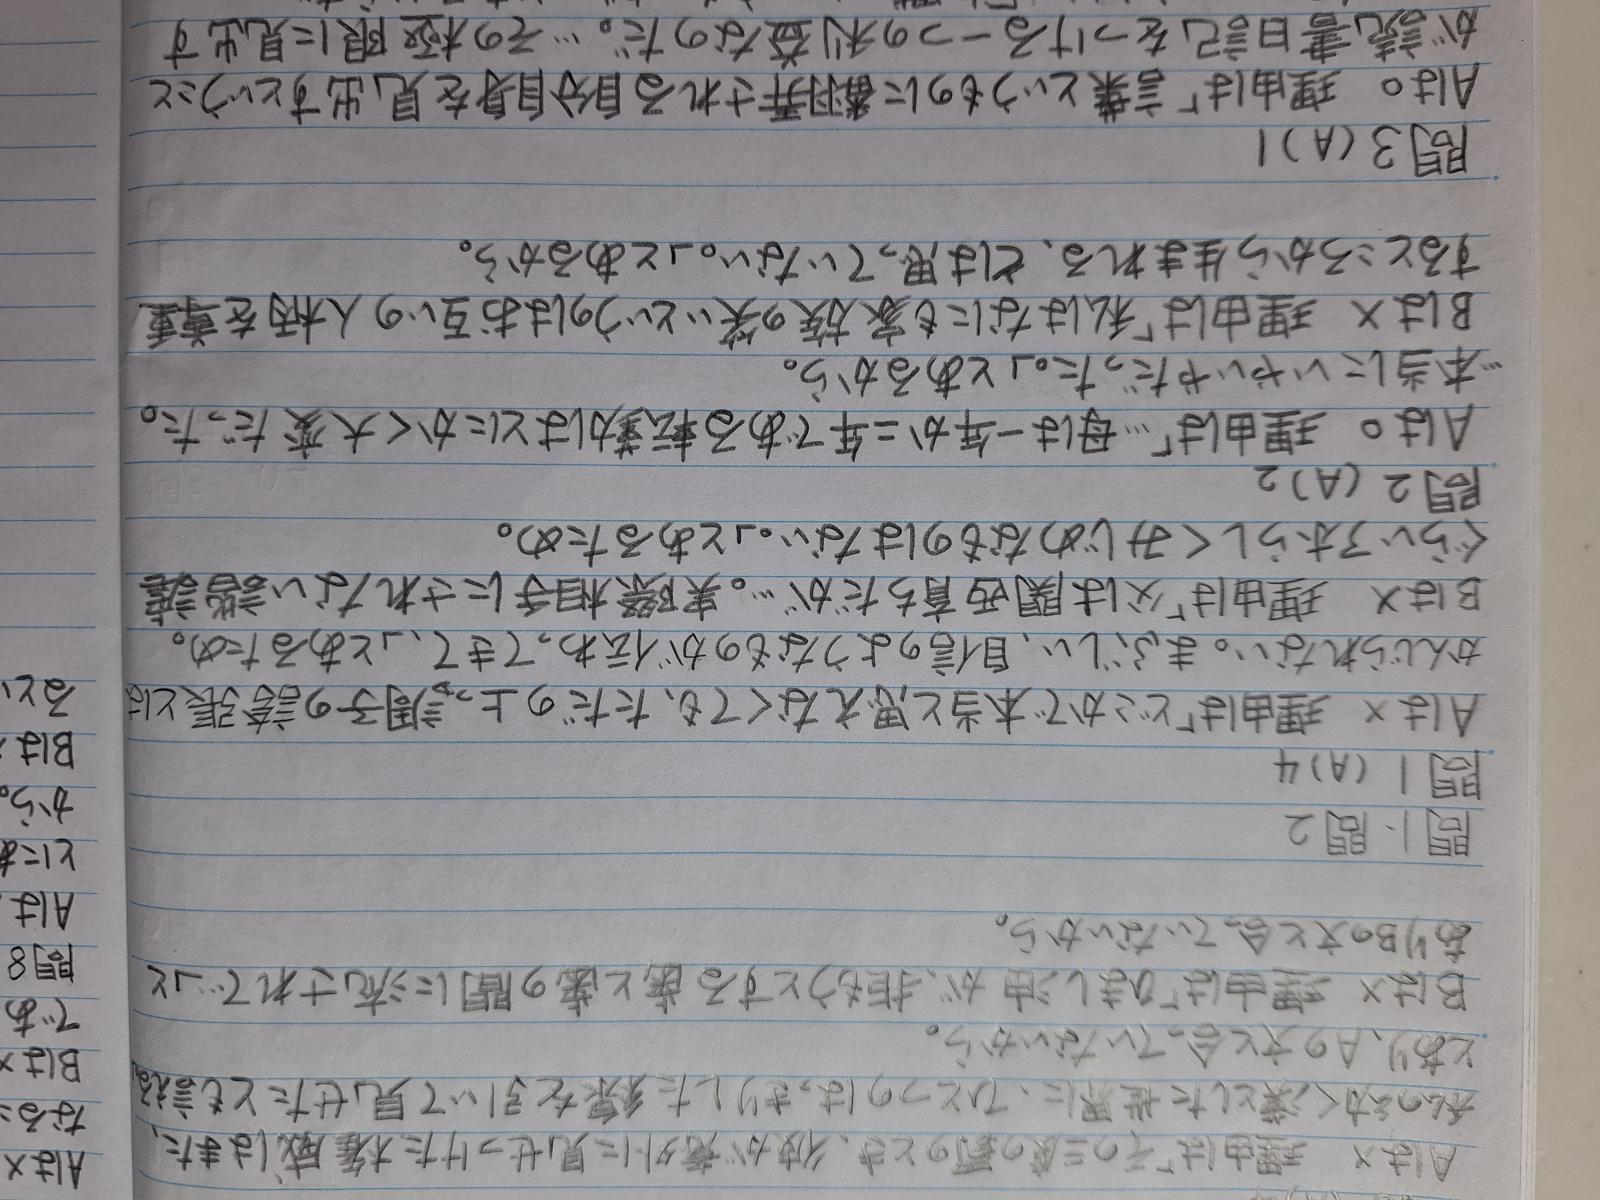 Aは× 理由は「その三度の とき、彼が意外に見せつけた権威はまた、
私の く漠とした世界に、ひとつのはっきりした線を引いて見せたとも言える。
とあり、Aの文と合っていないから。
Bは× 理由は「ひまし油が、拒もうとする歯と歯の間に流されて…」と
ありBの文と合っていないから。
問1.問2
問1 (A)4
Aは× 理由は「どこかで本当と思えなくても、ただの上っ調子の誇張とは
かんじられない。まぶしい、自信のようなものが伝わってきて、」とあるため。
Bは× 理由は「父は関西育ちだが…。実際相手にされない諧謔
ぐらい みじめなものはない。」とあるため。
問2 (A)2
Aは○ 理由は「…母は一年か二年である転勤がとにかく大変だった。
…本当にいやだった。」とあるから。
Bは× 理由は「私はなにも家族の笑いというのはお互いの人柄を尊重
するところから生まれる、とは思っていない。」とあるから。
問3 (A)1
Aは○ 理由は「言葉というものに翻弄される自分自身を見出すということ
が読書日記をつける一つの利益なのだ。…その極限に見出す
Aは×
なるこ
Bは×
であ
問8
Aは
とにあ
から。
Bは×
るとい